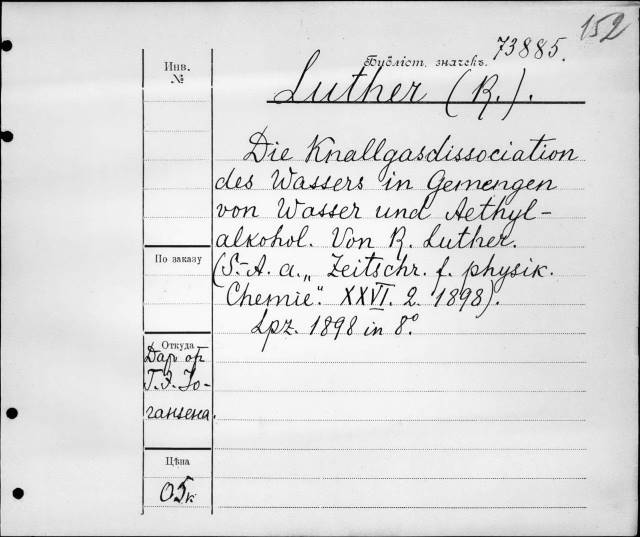 152
73885.
Библіот. значекъ.
Luther (R.).
Die Knallgasdissociation
des Wassers in Gemengen
von Wasser und Aethyl-
alkohol. Von R. Luther.
(S.-A. a. „Zeitschr. f. physik.
Chemie“. XXVI. 2. 1898).
Lpz. 1898 in 8°.
Инв.
№
По заказу
Откуда
Даръ отъ
Г. Э. Іо-
гансена.
Цѣна
05к